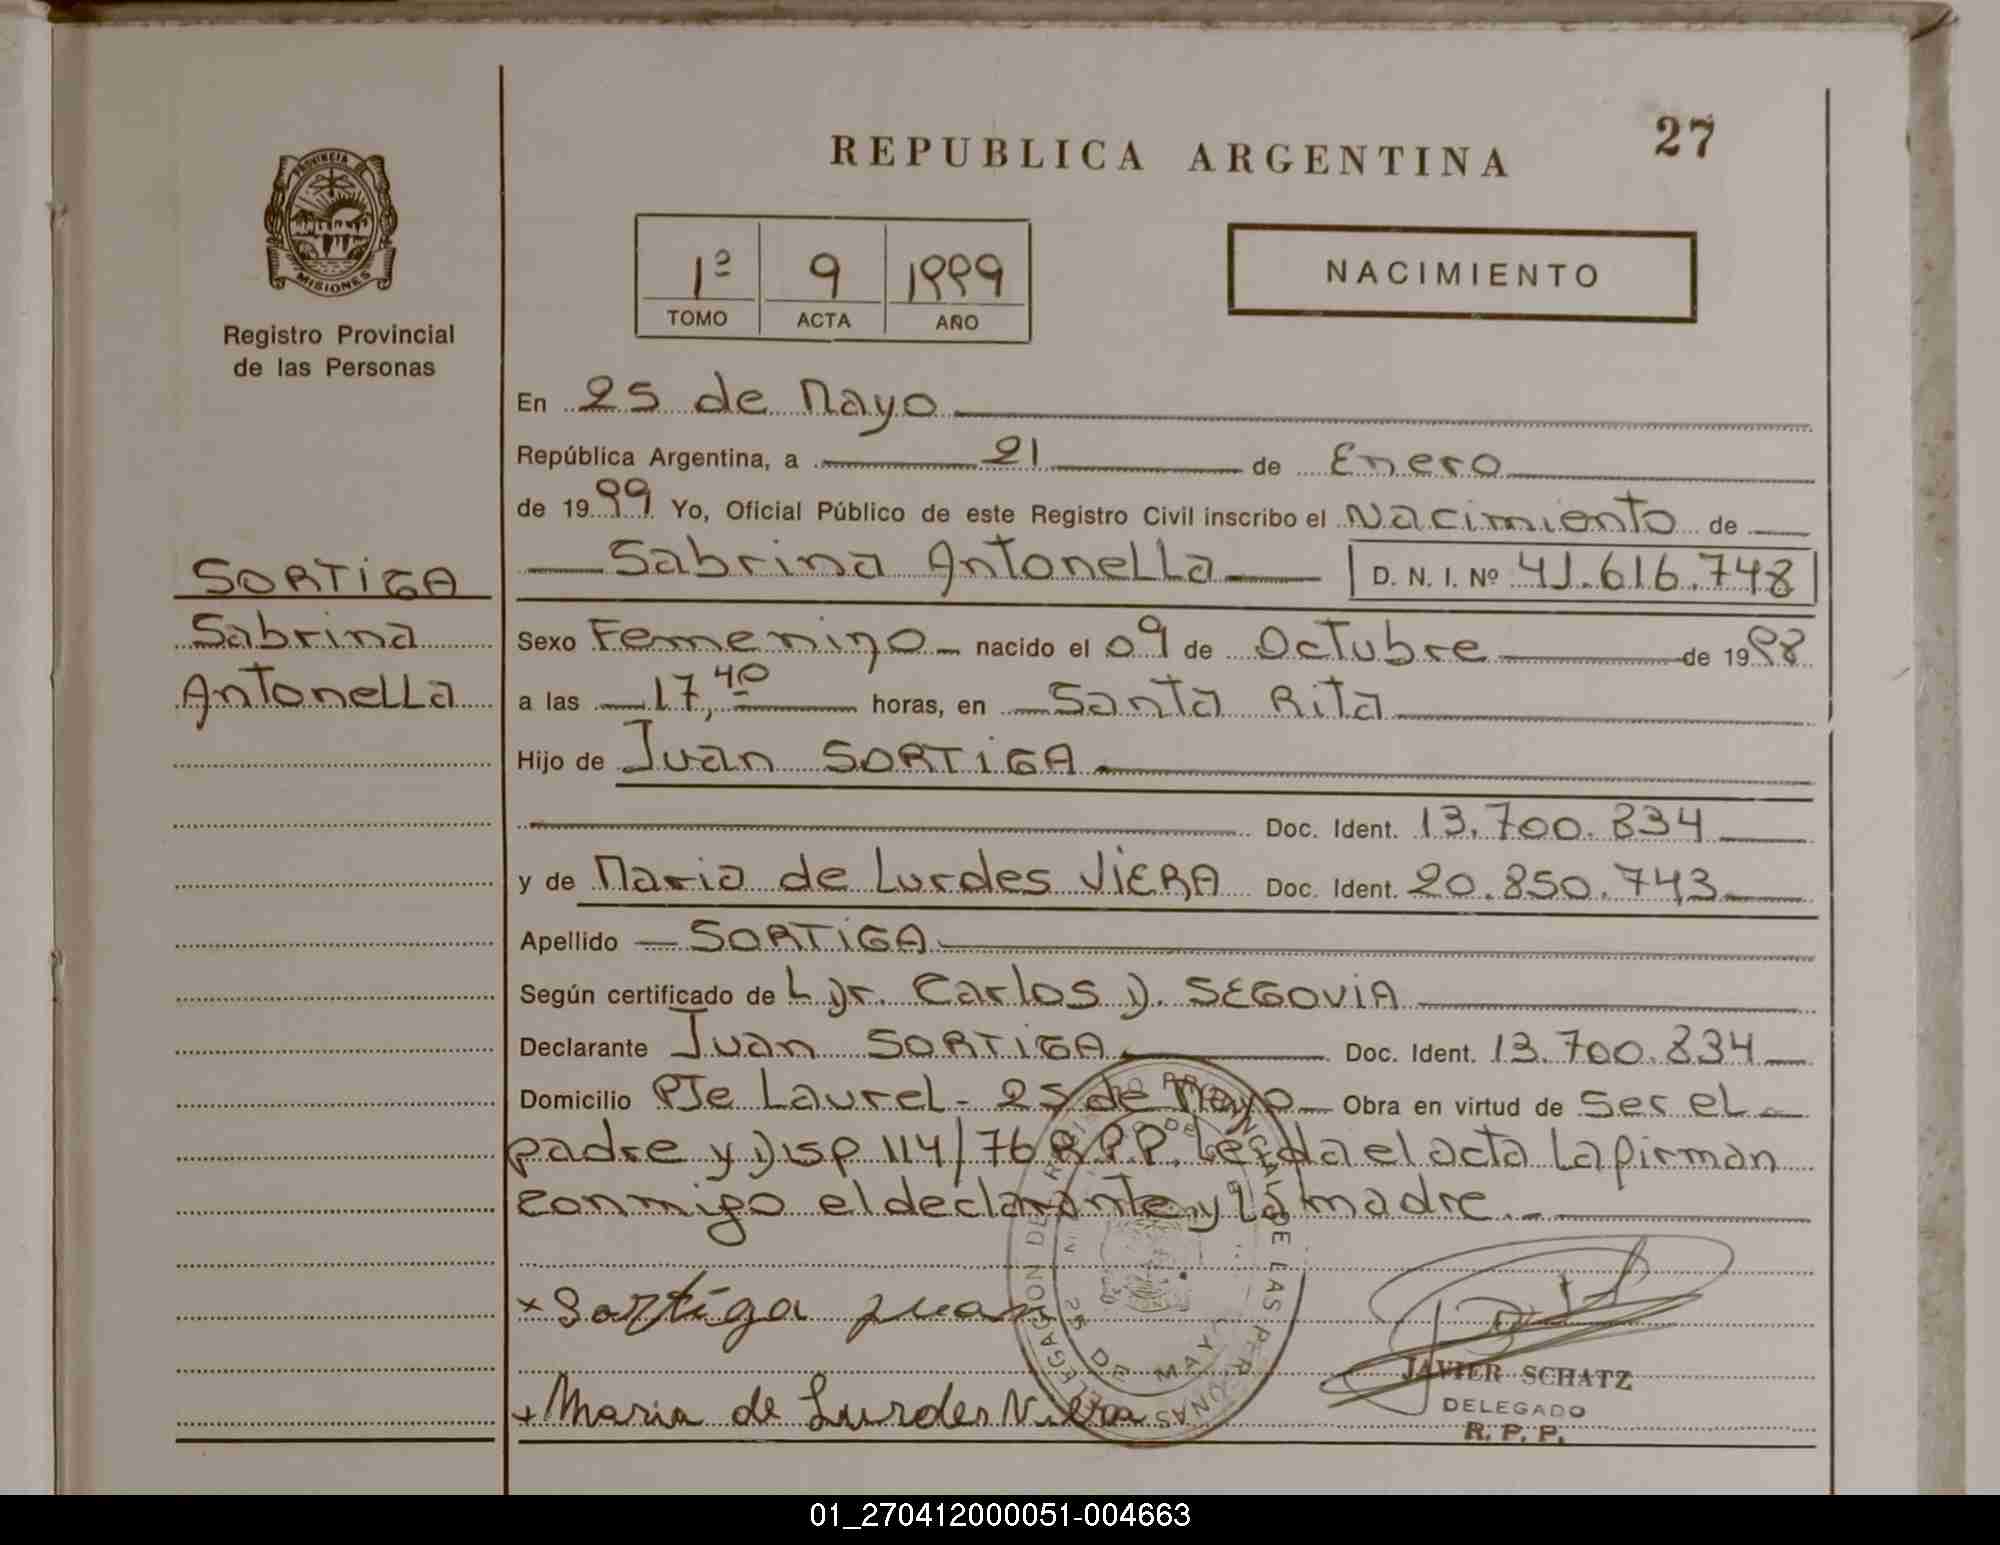 27
REPUBLICA ARGENTINA
PROVINCIA DE
MISIONES
Registro Provincial
de las Personas
1º 9 1999
TOMO ACTA AÑO
NACIMIENTO
En 25 de Mayo
República Argentina, a 21 de Enero
de 1999 Yo, Oficial Público de este Registro Civil inscribo el Nacimiento de
Sabrina Antonella D. N. I. Nº 41.616.748
SORTIGA
Sabrina
Antonella
Sexo Femenino nacido el 09 de Octubre de 1998
a las 17,40 horas, en Santa Rita
Hijo de Juan SORTIGA
Doc. Ident. 13.700.834
y de Maria de Lurdes VIERA Doc. Ident. 20.850.743
Apellido SORTIGA
Según certificado de Dr. Carlos D. SEGOVIA
Declarante Juan SORTIGA Doc. Ident. 13.700.834
Domicilio Pje Laurel - 25 de Mayo Obra en virtud de Ser el
padre y Disp 114/76 R.P.P. Leida el acta la firman
conmigo el declarante y la madre.-
x Sortiga Juan
+ Maria de Lurdes Viera
DELEGACION DE REGISTRO PROVINCIAL DE LAS PERSONAS
25 DE MAYO
JAVIER SCHATZ
DELEGADO
R. P. P.
01_270412000051-004663